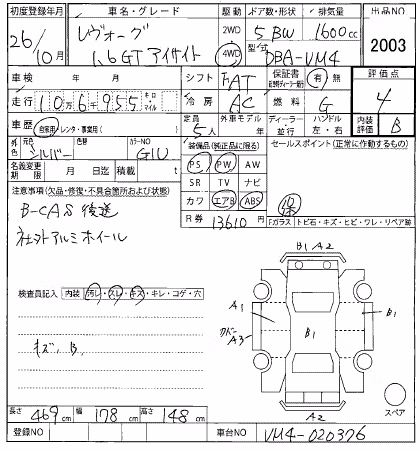 初度登録年月 車名・グレード 駆動 ドア数・形状 排気量 出品NO
26/10月 レヴォーグ 1.6GTアイサイト 2WD 4WD 5 BW 1600cc 型式 DBA-VM4 2003
車検 年 月 シフト FAT 保証書 有 無 評価点
走行 10万6千955 キロ マイル 冷房 AC 燃料 G 4
車歴 自家用・レンタ・事業用( ) 定員 5人 外車モデル 年 ディーラー・並行 ハンドル 左・右 内装 B
元色 シルバー 色替 カラーNO G1U 装備品(純正品に限る) セールスポイント(正常に作動するもの)
PS PW AW
名義変更期限 月 日 積載 t SR TV ナビ
注意事項(欠品・修復・不具合箇所および状態) カワ エアB ABS
B-CAS後送 R券 13610円 保
社外アルミホイール Fガラス トビ石・キズ・ヒビ・ワレ・リペア跡
B1 A2
検査員記入 内装 汚レ・スレ・キズ・キレ・コゲ・穴
A1 B1 B1
カバー A3
キズ、B、
スペア
長さ 469cm 幅 178cm 高さ 148cm A2
登録NO 車台NO VM4-020376